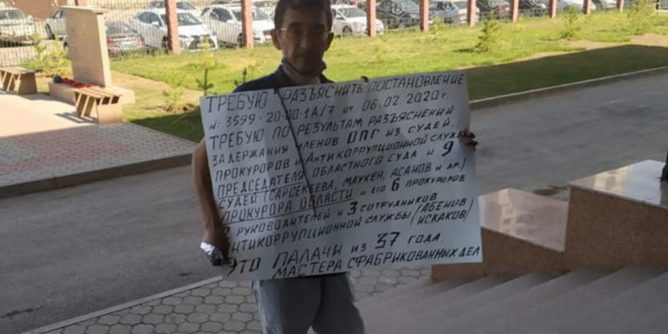 ТРЕБУЮ РАЗЪЯСНИТЬ ПОСТАНОВЛЕНИЕ
№ 3599-20-00-1А/7 от 06.02.2020г.
ТРЕБУЮ ПО РЕЗУЛЬТАМ РАЗЪЯСНЕНИЙ
ЗАДЕРЖАНИЯ ЧЛЕНОВ ОПГ ИЗ СУДЕЙ,
ПРОКУРОРОВ И АНТИКОРРУПЦИОННОЙ СЛУЖБЫ
ПРЕДСЕДАТЕЛЯ ОБЛАСТНОГО СУДА И 9
СУДЕЙ (САРСЕКЕЕВА, МАУКЕН, АСАНОВ И ДР.)
ПРОКУРОРА ОБЛАСТИ И ЕГО 6 ПРОКУРОРОВ
РУКОВОДИТЕЛЕЙ И 3 СОТРУДНИКОВ
АНТИКОРРУПЦИОННОЙ СЛУЖБЫ (АБЕНОВ ИСКАКОВ)
ЭТО ПАЛАЧИ ИЗ 37 ГОДА
МАСТЕРА СФАБРИКОВАННЫХ ДЕЛ